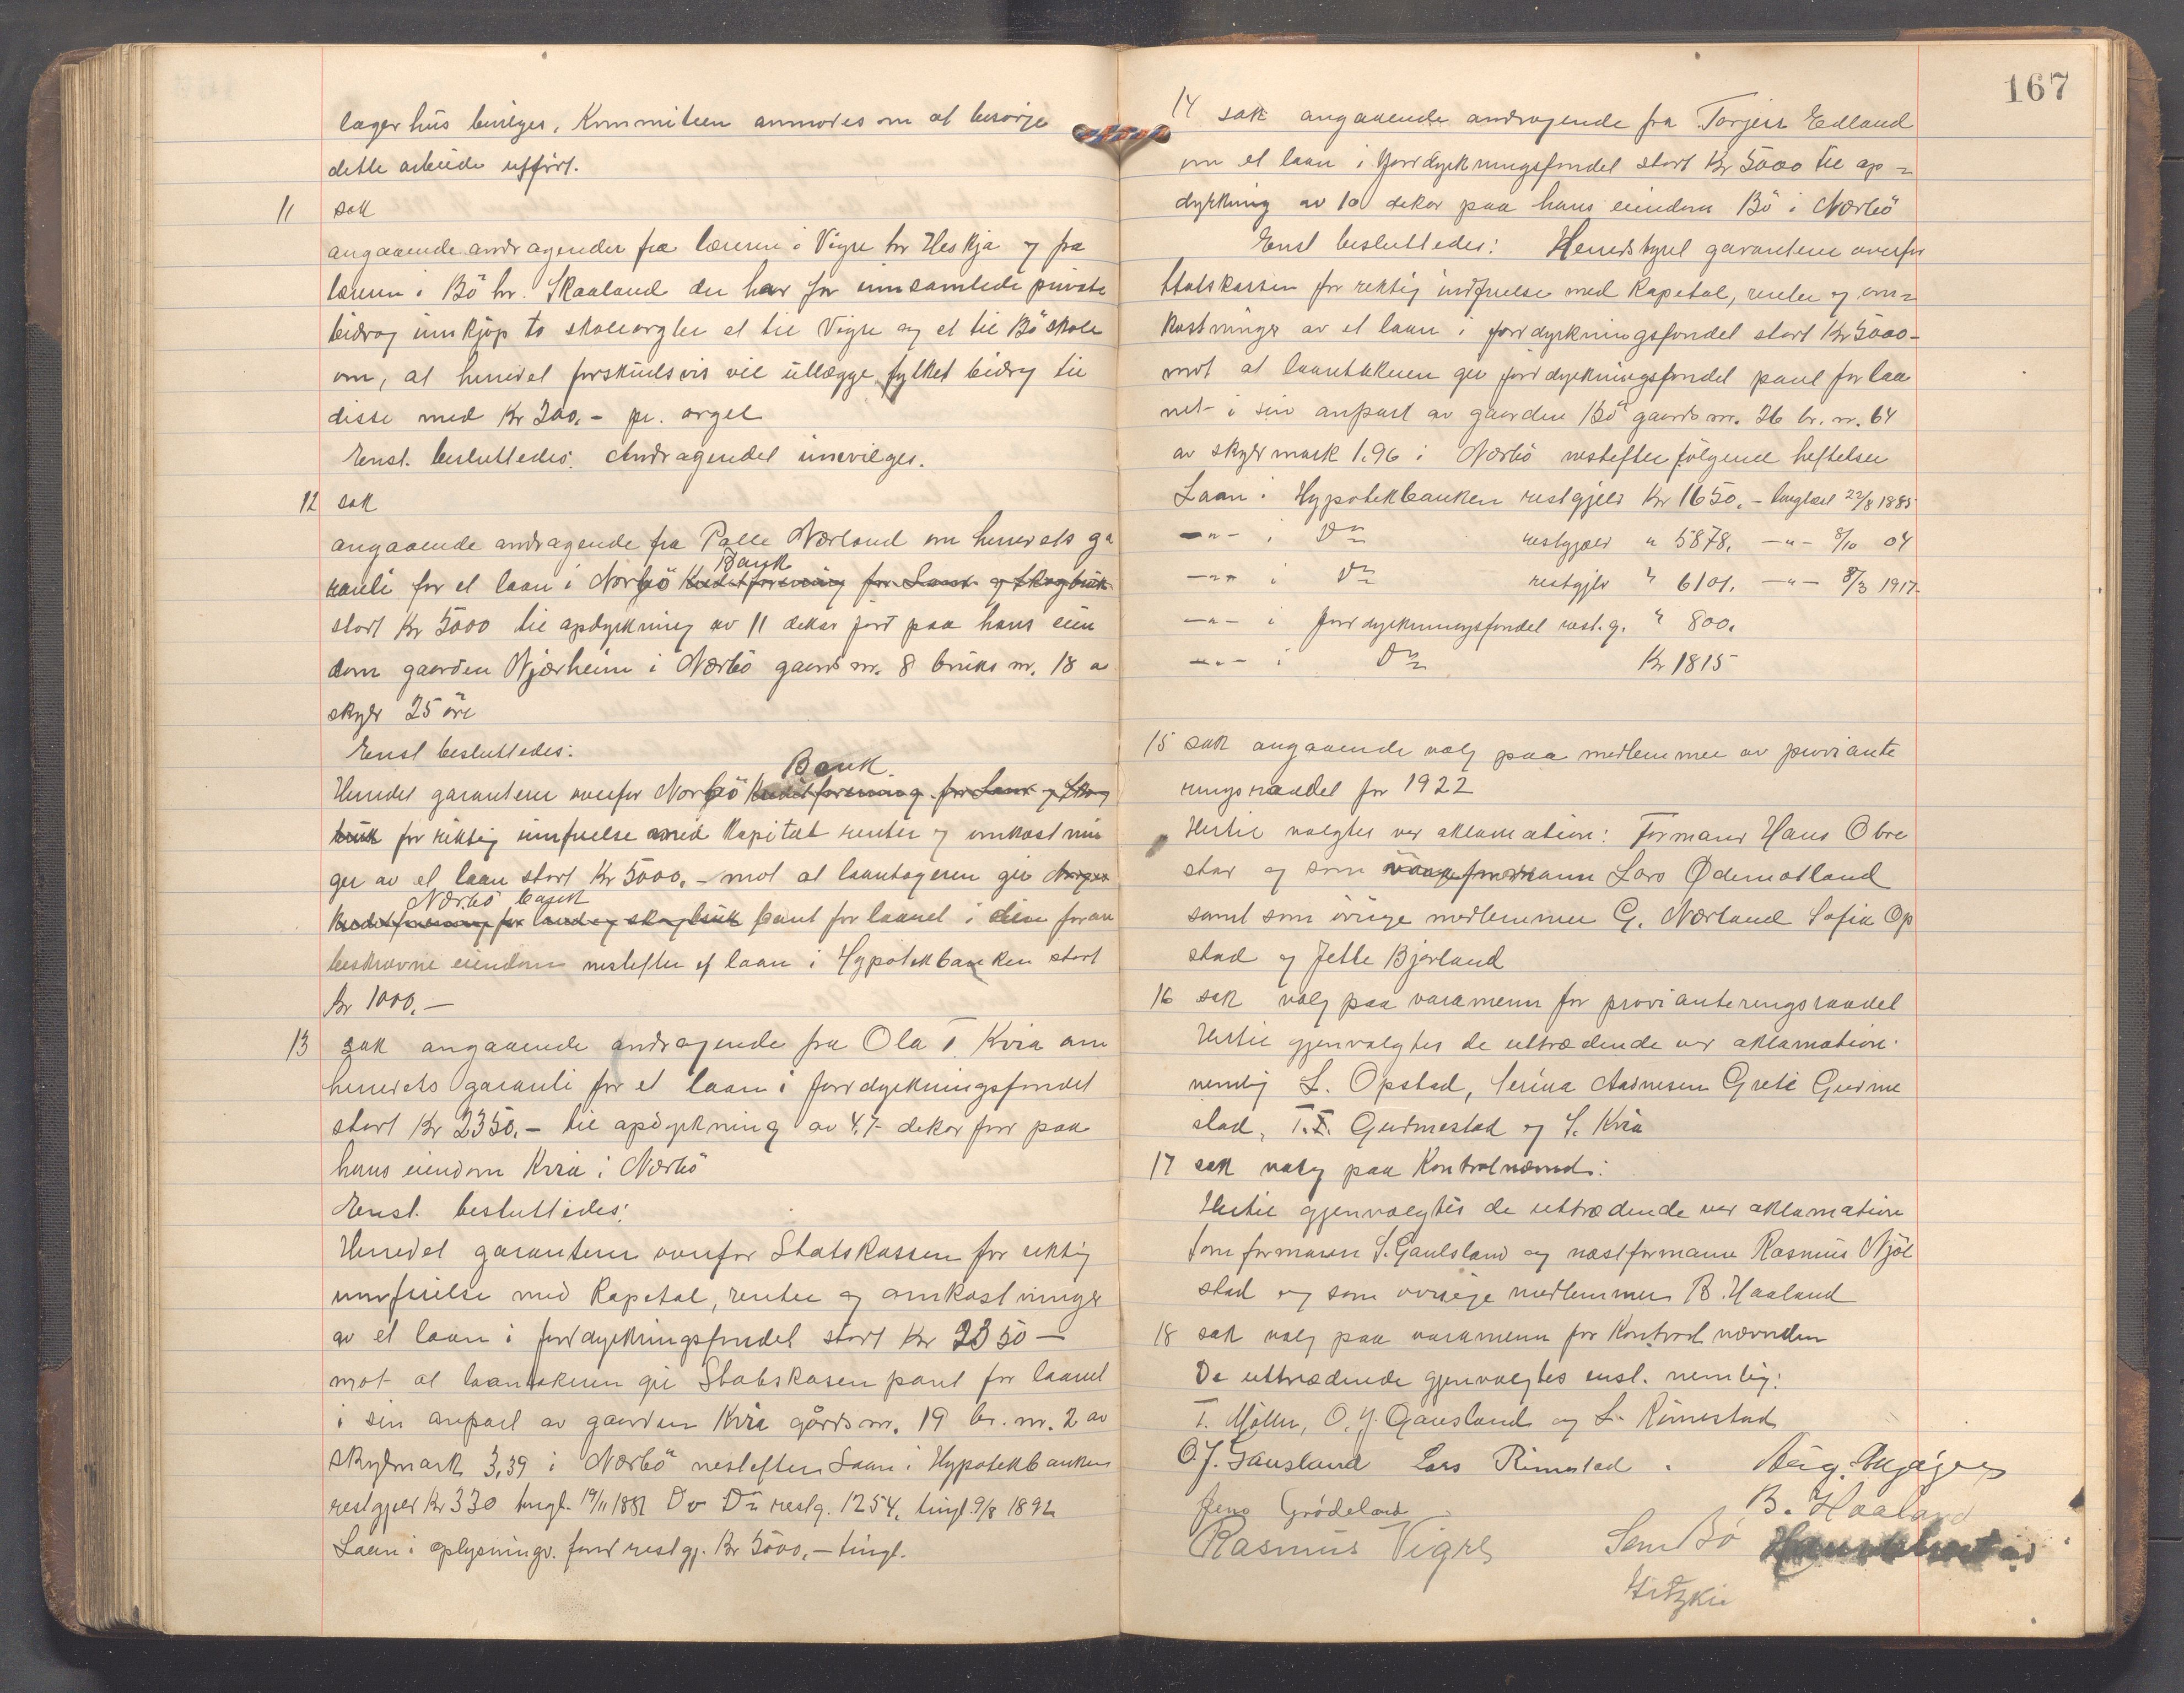 lagerhus bevilges, Kommiteen anmodes om at besørje
dette arbeide utført.
11 sak
angaaende andragender fra læreren i Vigre hr Heskja og fra
læreren i Bö hr. Skaaland der har for innsamlede private
bidrag innkjøp to skoleorgler et til Vigre og et til Bö skole
om, at herredet forskudsvis vil utlægge fylket bidrag til
disse med Kr 200,- pr. orgel
Enst. besluttedes. Andragendet innvilges.
12 sak
angaaende andragende fra Palle Nærland om herredets ga
Bank
ranti for et laan i Nærbö Kreditforening for Land og Skogbruk
stort Kr 5000 til opdyrkning av 11 dekar jord paa hans eien
dom gaarden Njærheim i Nærbö gaards nr. 8 bruks nr. 18 a
skyld 25 öre
Enst besluttedes:
Bank
Herredet garanterer overfor Nærbö Kreditforening for Land og Skog
bruk for riktig innfrielse med Kapital renter og omkostnin
ger av et laan stort Kr 5000,- mot at laantageren gir Norges
Nærbö bank
Kreditforening for land og skogbruk pant for laanet i den foran
beskrevne eiendom nestefter et laan i Hypotekbanken stort
Kr 1000,-
13 sak angaaende andragende fra Ola T. Kvia om
herredets garanti for et laan i Jorddyrkningsfondet
stort Kr 2350,- til opdyrkning av 4,7 dekar jord paa
hans eiendom Kvia i Nærbö
Enst. besluttedes:
Herredet garanterer overfor Statskassen for riktig
innfrielse med Kapetal, renter og omkostninger
av et laan i jorddyrkningsfondet stort Kr 2350 —
mot at laantakeren gir Statskasen pant for laanet
i sin anpart av gaarden Kvia gårds nr. 19 br. nr. 2 av
skyldmark 3,39 i Nærbö nestefter Laan i Hypotekbanken
restgjeld Kr 330 tingl. 19/11 1881 Do Do restg. 1254, tingl. 9/8 1892
Laan i oplysningv. fond restgj. Kr 5000,- tingl.
167
14 sak angaaende andragende fra Torjers Edland
om et laan i Jorddyrkningsfondet stort Kr 5000 til op=
dyrkning av 10 dekar paa hans eiendom Bö i Nærbö
Enst besluttedes: Herredstyret garanterer overfor
Statskassen for rektig indfrielse med Kapetal, renter og om=
kostninger av et laan i jorddyrkningsfondet stort Kr 5000-
mot at laantakeren gir jorddyrkningsfondet pant for laa
net i sin anpart av gaarden Bö gaards nr. 26 br. nr. 64
av skyldmark 1.96 i Nærbö nestefter følgende heftelser
Laan i Hypotekbanken restgjeld Kr 1650,- tinglæst 22/8 1885
—„— i Do restgjæld „ 5878, —„— 8/10 04
—„— i Do restgjeld „ 6101, —„— 8/3 1917-
—„— i Jorddyrkningsfondet rest.g. „ 800,
—„— i Do Kr 1815
15 sak angaaende valg paa medlemmer av proviante
ringsraadet for 1922
Hertil valgtes ved aklamation: Formand Hans Obre
stad og som formann Lars Ødemotland
samt som övrige medlemmer G. Nærland Sofia Op
stad og Jette Bjorland
16 sak valg paa varamenn for provianteringsraadet
Hertil gjenvalgtes de uttrædende ved aklamation.
nemlig L. Opstad, Serina Aasnesen Grete Gudme
stad, T.T. Gudmestad og S. Kvia
17 sak valg paa Kontrolnemd:
Hertil gjenvalgtes de uttrædende ved aklamation
som formann S. Gaulsland og næstformann Rasmus Njöl
stad og som øvrige medlemmer B. Haaland
18 sak valg paa varamenn for Kontrolnævnden
De uttrædende gjenvalgtes enst. nemlig:
T. Möller, O.J. Gausland og L. Rimestad
O.J. Gausland Lars Rimestad
Jens Grödeland B. Haaland
Rasmus Vigre Sem Bö